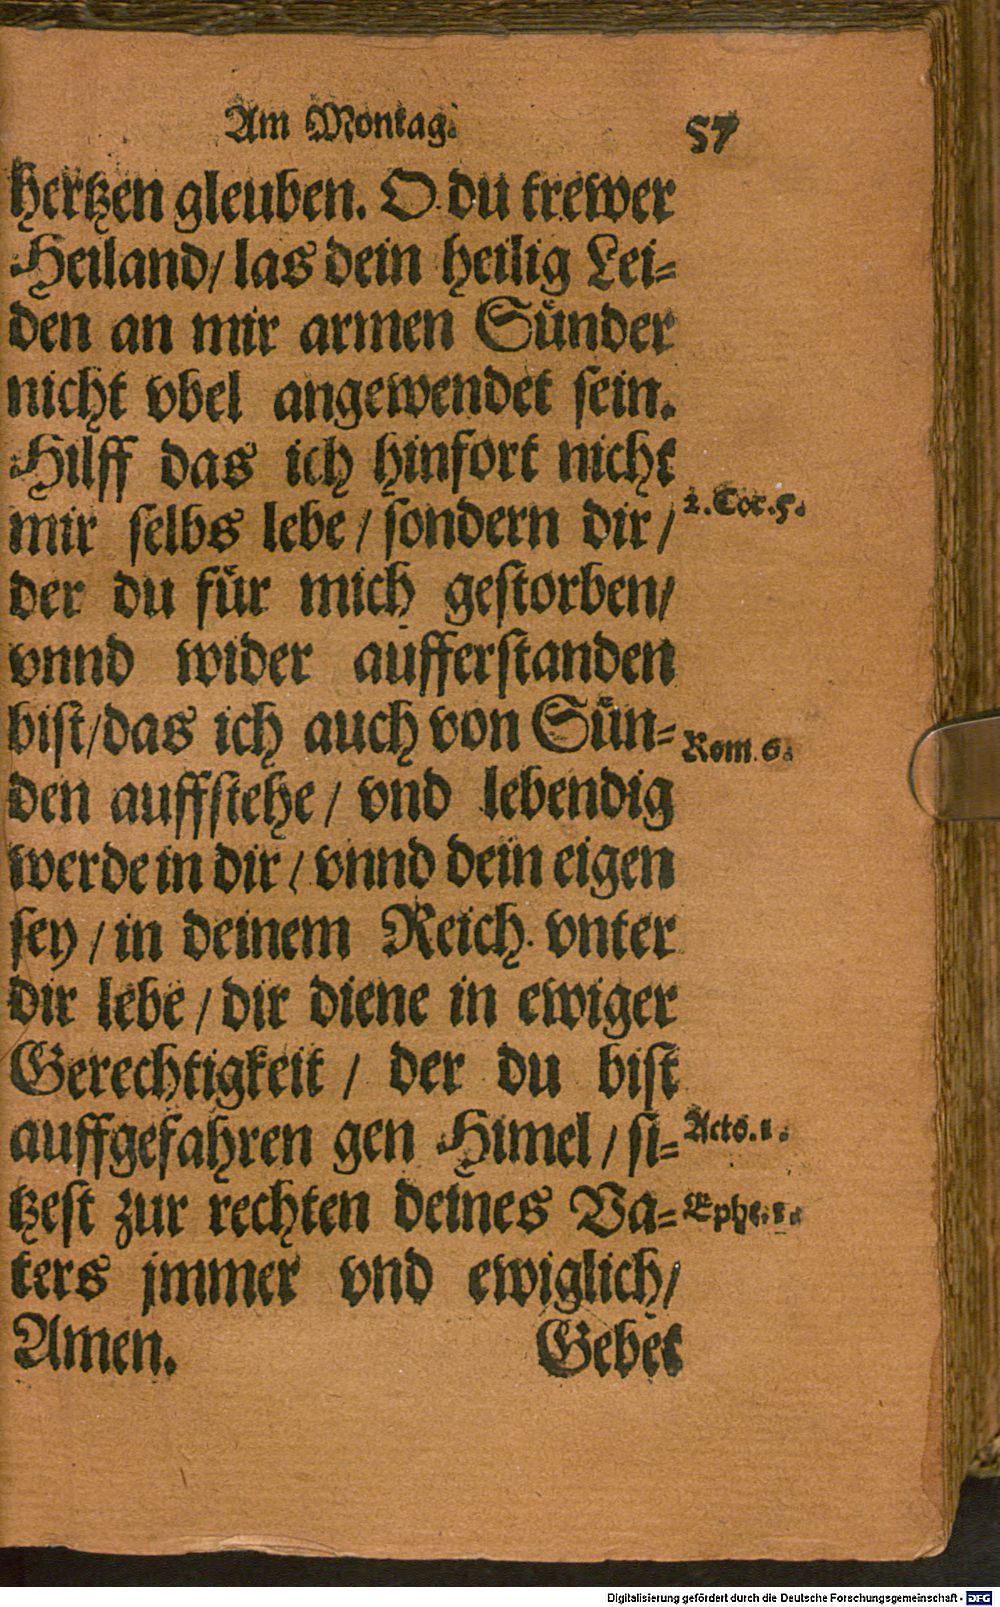 Am Montag. 57
hertzen gleuben. O du trewer
Heiland/ las dein heilig Lei-
den an mir armen Sünder
nicht vbel angewendet sein.
Hilff das ich hinfort nicht
mir selbs lebe / sondern dir /
2. Cor. 5.
der du für mich gestorben/
vnnd wider aufferstanden
bist/das ich auch von Sün-
Rom. 6.
den auffstehe / vnd lebendig
werde in dir / vnnd dein eigen
sey / in deinem Reich vnter
dir lebe / dir diene in ewiger
Gerechtigkeit / der du bist
auffgefahren gen Himel / si-
Acts. 1.
tzest zur rechten deines Va-
Ephe. 1.
ters jmmer vnd ewiglich/
Amen. Gebet
Digitalisierung gefördert durch die Deutsche Forschungsgemeinschaft - DFG